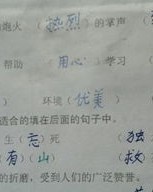 炮火 （热烈）的掌声
帮助 （用心）学习
环境（优美）
适合的填在后面的句子中。
生（忘）死 （独
（有）（山） （救
的折磨，受到人们的广泛赞誉。